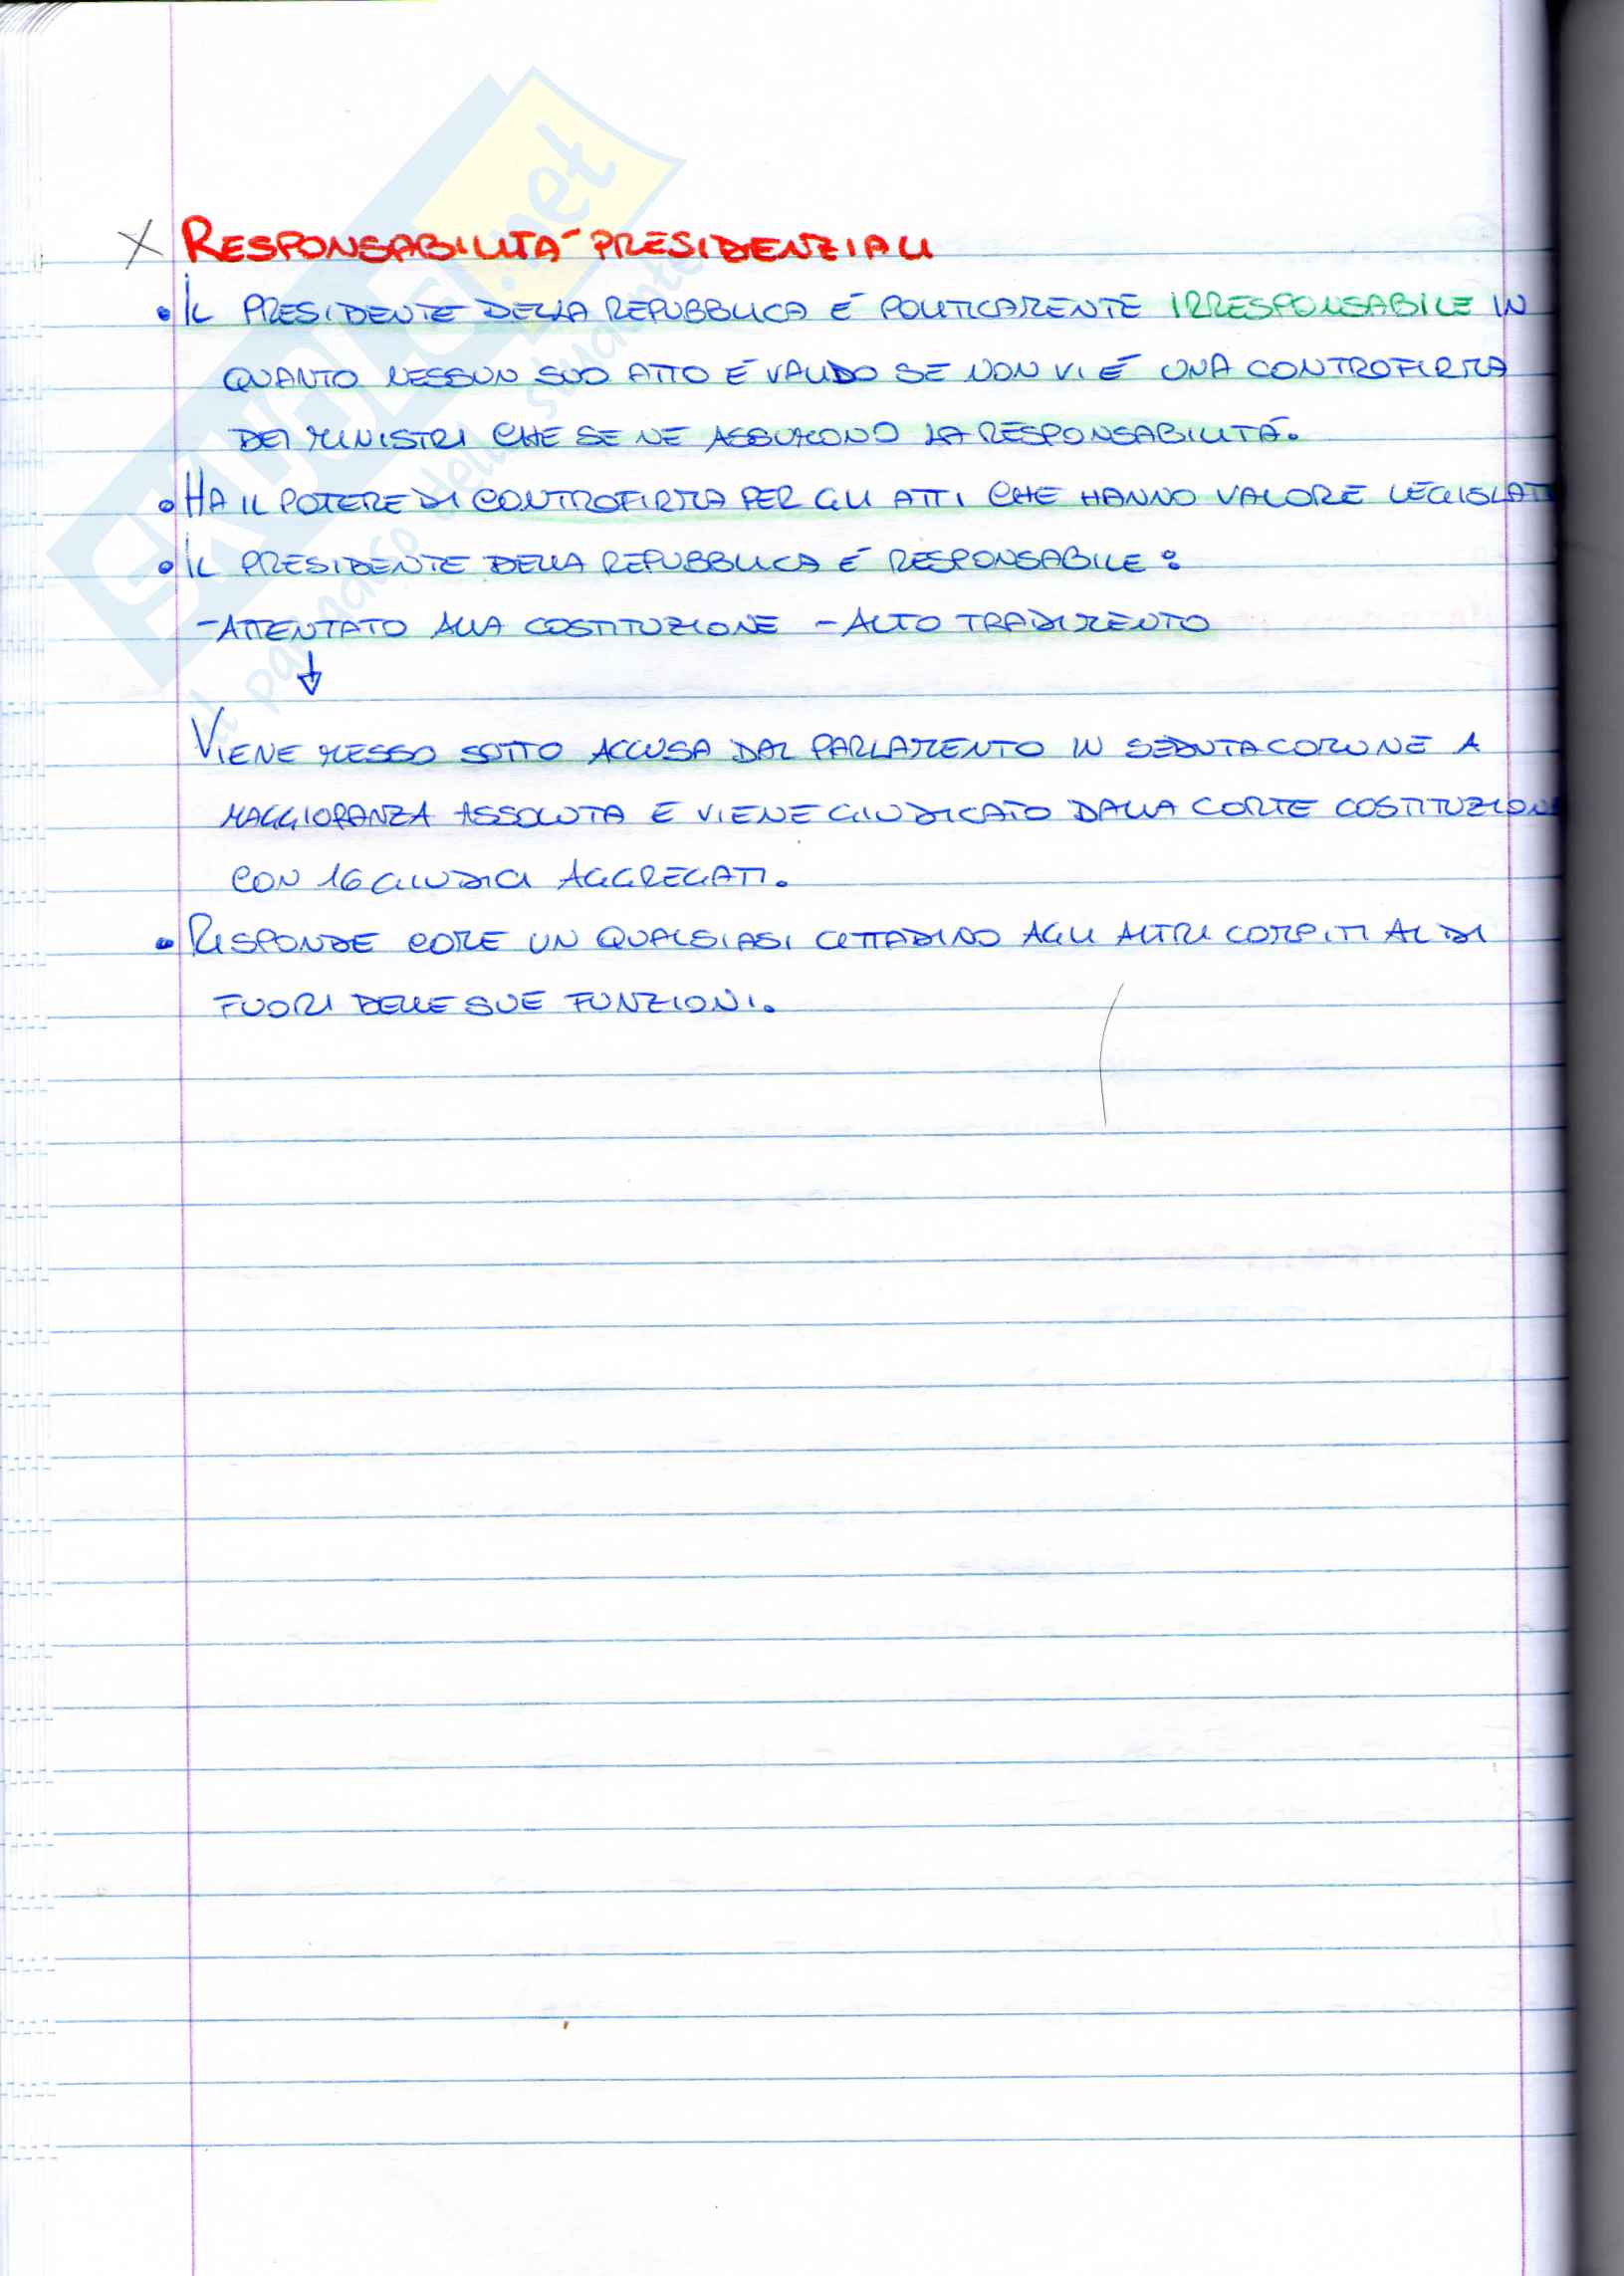 SKUOLA.net
il paradiso dello studente
X RESPONSABILITÀ PRESIDENZIALI
• IL PRESIDENTE DELLA REPUBBLICA È POLITICAMENTE IRRESPONSABILE IN
QUANTO NESSUN SUO ATTO È VALIDO SE NON VI È UNA CONTROFIRMA
DEI MINISTRI CHE SE NE ASSUMONO LA RESPONSABILITÀ.
• HA IL POTERE DI CONTROFIRMA PER GLI ATTI CHE HANNO VALORE LEGISLAT
• IL PRESIDENTE DELLA REPUBBLICA È RESPONSABILE:
- ATTENTATO ALLA COSTITUZIONE - ALTO TRADIMENTO
↓
VIENE MESSO SOTTO ACCUSA DAL PARLAMENTO IN SEDUTA COMUNE A
MAGGIORANZA ASSOLUTA E VIENE GIUDICATO DALLA CORTE COSTITUZION
CON 16 GIUDICI AGGREGATI.
• RISPONDE COME UN QUALSIASI CITTADINO AGLI ALTRI COMPITI AL DI
FUORI DELLE SUE FUNZIONI.